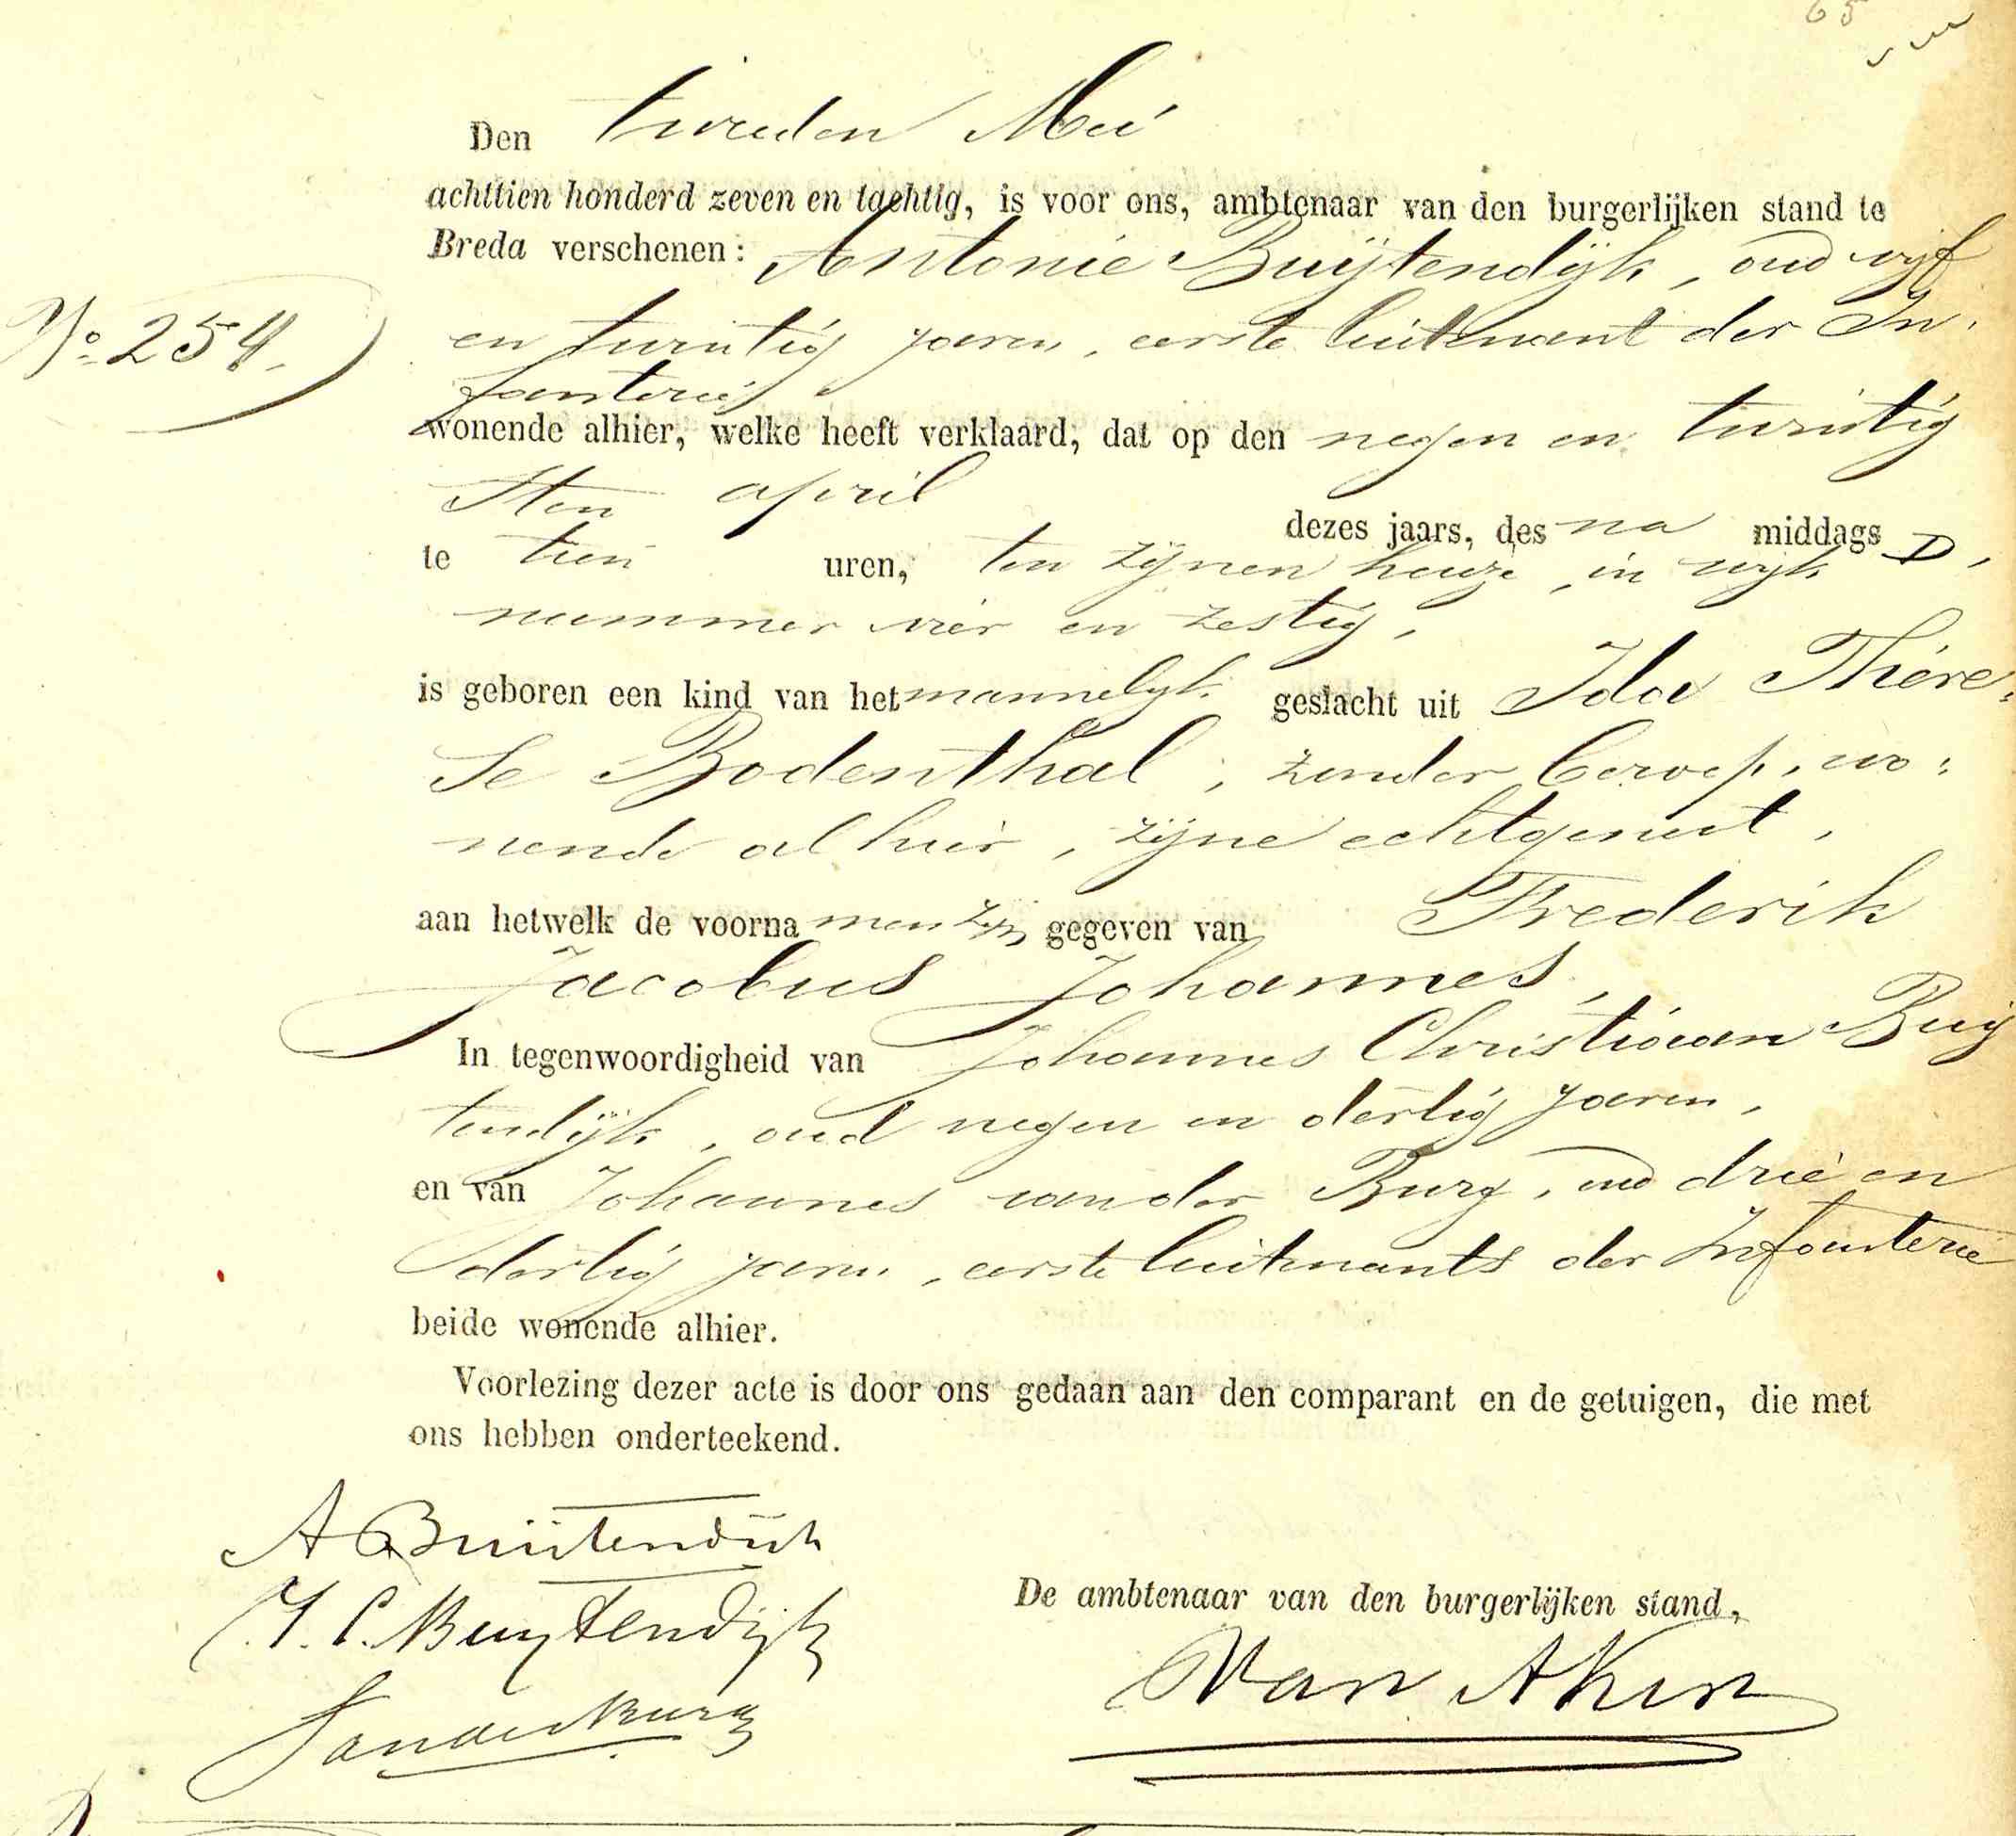 65
Den tweeden Mei
achttien honderd zeven en tachtig, is voor ons, ambtenaar van den burgerlijken stand te
Breda verschenen: Antonie Buijtendijk, oud vijf
No. 254. en twintig jaren, eerste luitenant der In-
fanterie,
wonende alhier, welke heeft verklaard, dat op den negen en twintig
sten april dezes jaars, des na middags
te tien uren, ten zijnen huize, in wijk D,
nummer vier en zestig,
is geboren een kind van het mannelijk geslacht uit Ida Thére-
se Bodenthal, zonder beroep, wo-
nende alhier, zijne echtgenoot,
aan hetwelk de voornamen zijn gegeven van Frederik
Jacobus Johannes,
In tegenwoordigheid van Johannes Christiaan Buij
tendijk, oud negen en dertig jaren,
en van Johannes van der Burg, oud drie en
dertig jaren, eerste luitenants der Infanterie
beide wonende alhier.
Voorlezing dezer acte is door ons gedaan aan den comparant en de getuigen, die met
ons hebben onderteekend.
A Buijtendijk
J. C. Buytendijk
De ambtenaar van den burgerlijken stand,
Van Aken
JvanderBurg